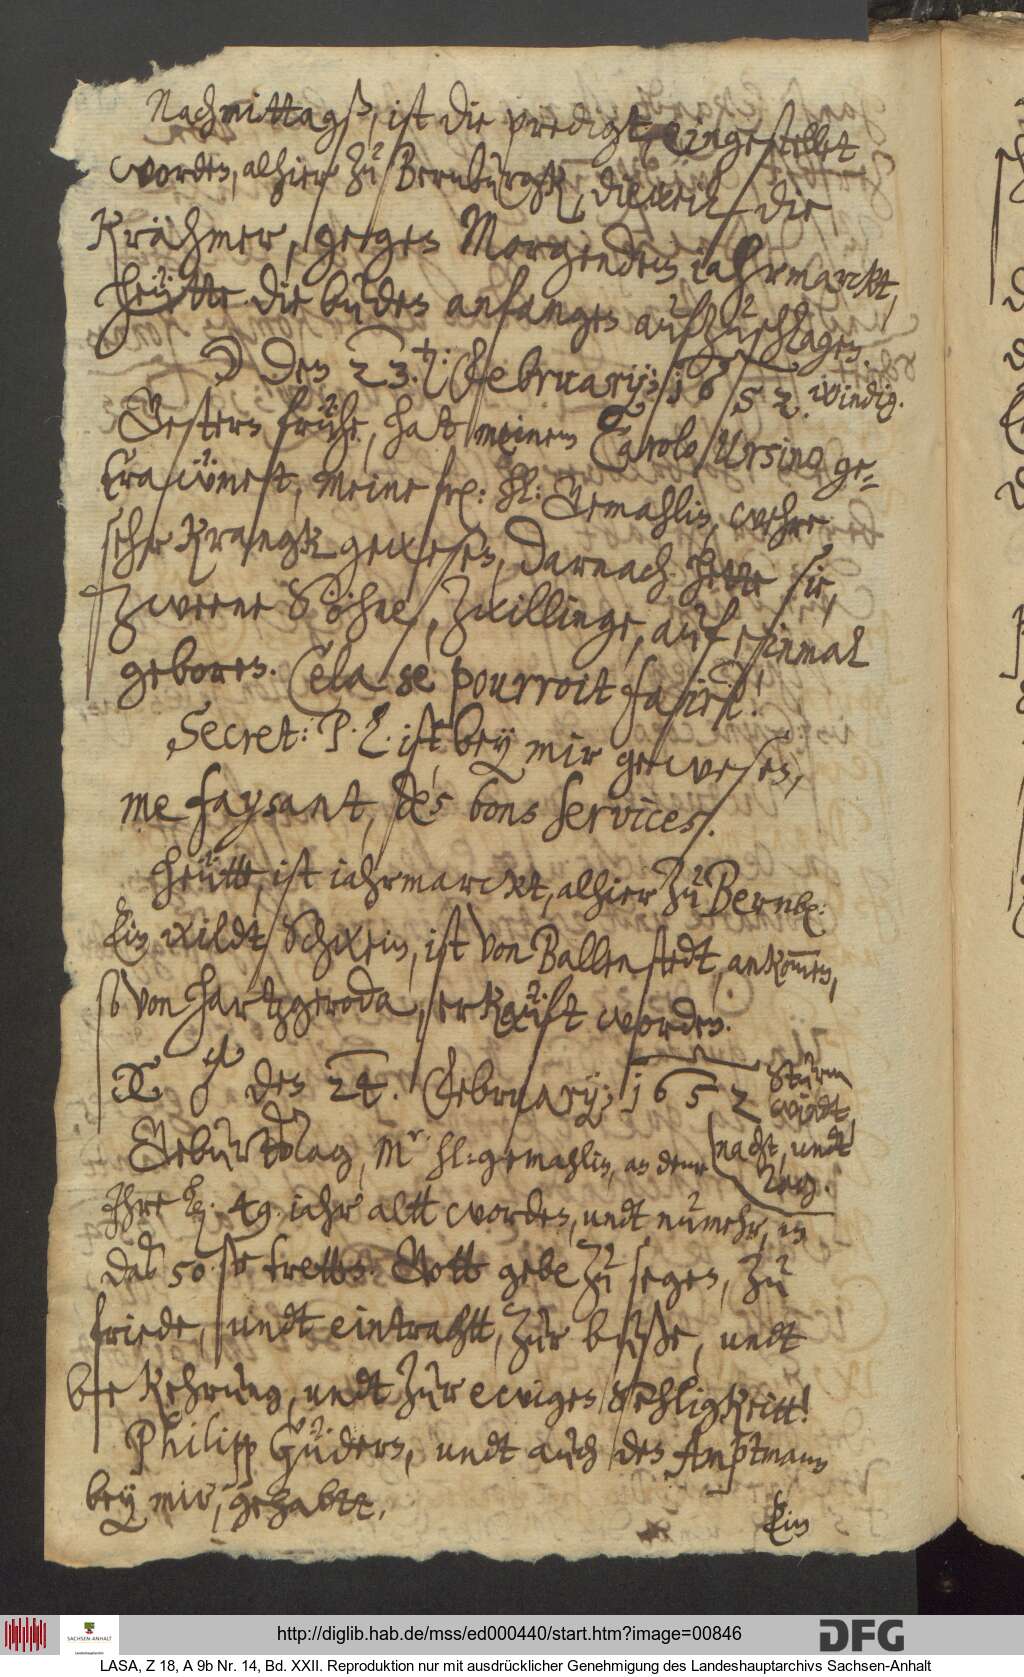 Nachmittagß, ist die predigt, eingestellet
worden, alhier zu Bernburgk, dieweil die
Krähmer, gegen Morgenden iahrmarckt,
heütte die buden anfangen aufzuschlagen.
☽ den 23. t: Februarij; 1652. windig.
Gestern frühe, hat meinem Carolo Ursino ge-
traümet, meine fr: hl: Gemahlin, wehre
sehr Krangk gewesen, darnach hette sie,
zweene Söhne, Zwillinge, auf einmal
geboren. Cela se pourroit fairé!
Secret: P. L. ist bey mir gewesen,
me faysant, des bons services.
Heütte, ist iahrmarckt, alhier zu Bernb:
Ein wildt Schwein, ist von Ballenstedt, ankommen,
so von Hartzgeroda, erkaüft worden.
♂ den 24. Februarij; 1652
Sturm
windt
nacht, undt
Tag.
GeburtsTag, Mr hl: gemahlin, an deme
Ihre L: 49. iahr altt worden, undt numehr, in
das 50.ste tretten. Gott gebe zu segen, zu
friede, undt eintrachtt, zur buße, undt
bekehrung, undt zur ewigen Sehligkeitt!
Philipp Güders, undt auch den Amptmann
bey mir, gehabtt.
Ein
http://diglib.hab.de/mss/ed000440/start.htm?image=00846
DFG
SACHSEN-ANHALT
LASA, Z 18, A 9b Nr. 14, Bd. XXII. Reproduktion nur mit ausdrücklicher Genehmigung des Landeshauptarchivs Sachsen-Anhalt